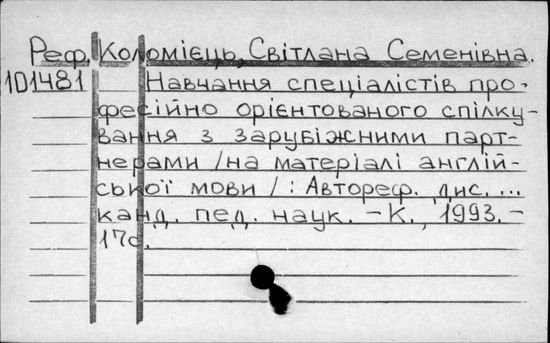 Реф. Коломієць, Світлана Семенівна.
101481 Навчання спеціалістів про-
фесійно орієнтованого спілку-
вання з зарубіжними парт-
нерами /на матеріалі англій-
ської мови/: Автореф. дис. ...
канд. пед. наук. – К., 1993. –
17с.